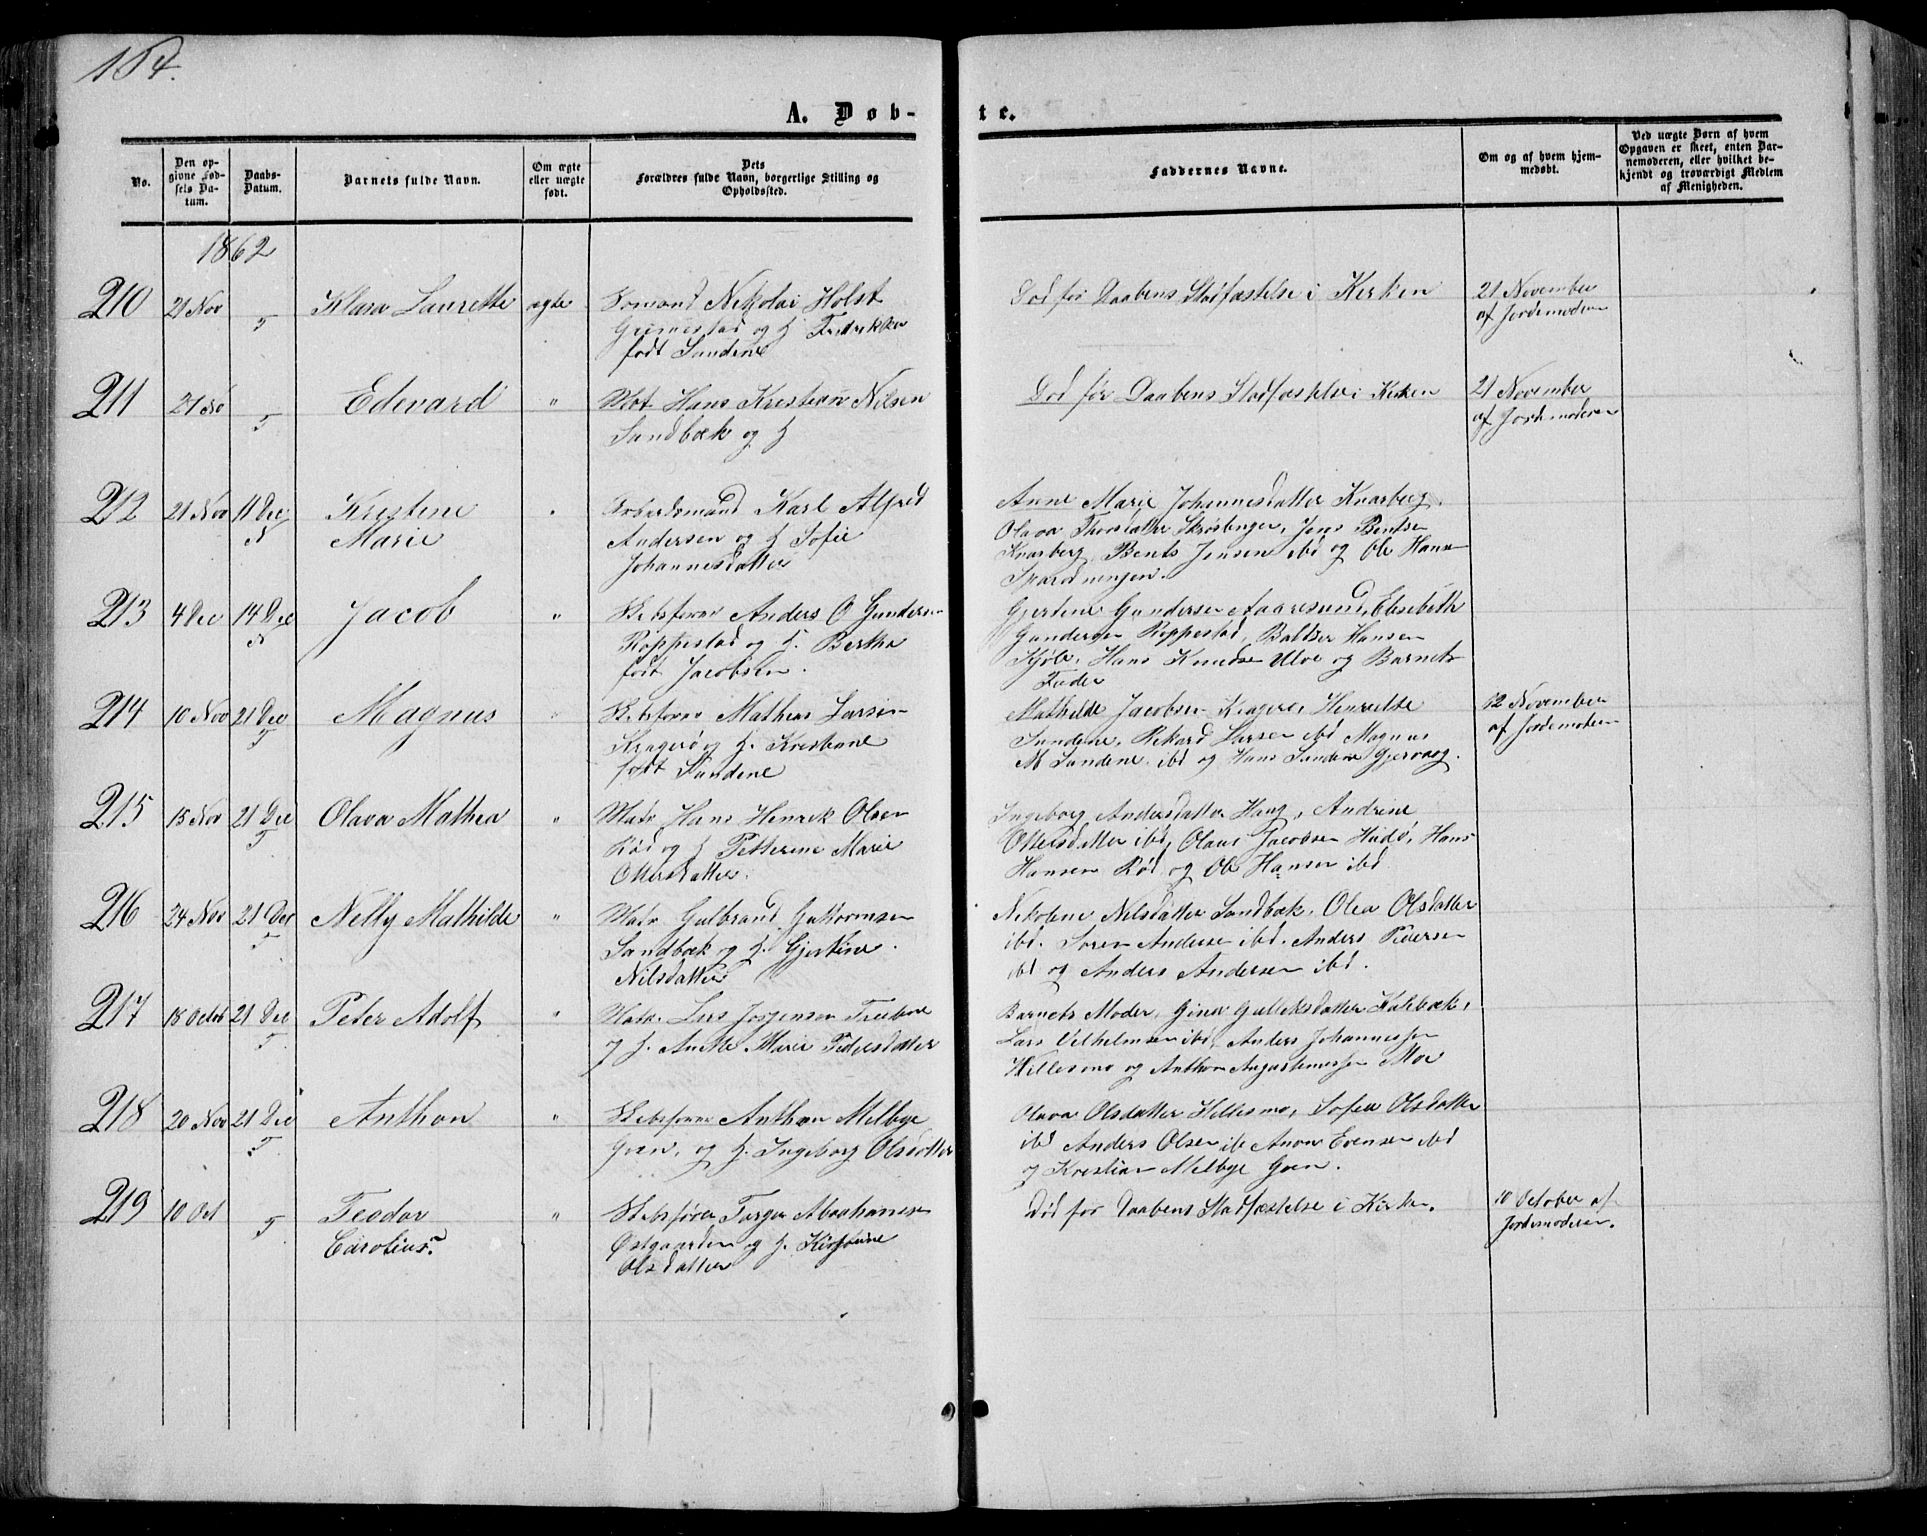 184.
A. Døb-
te.
No.
Den op-
givne Fød-
sels Da-
tum.
Daabs-
Datum.
Barnets fulde Navn.
Om ægte
eller uægte
født.
Dets
Forældres fulde Navn, borgerlige Stilling og
Opholdssted.
Faddernes Navne.
Om og af hvem hjem-
medøbt.
Ved uægte Børn af hvem
Opgaven er skeet, enten Bar-
nemoderen, eller hvilket be-
kjendt og troværdigt Medlem
af Menigheden.
1862
210 21 Nov Klara Laurette ægte Somand Nikolai Holst
Grimestad og H. Fredrikke
født Sandene
Død før Daabens Stadfæstelse i Kirken
21 November
af Jordemoderen
211 21 No Edevard " Mat Hans Kristian Nilsen
Sandbæk og H
Død før Daabens Stadfæstelse i Kirken
21 November
af Jordemoderen
212 21 Nov 11 Dec Kristine
Marie
Arbeidsmand Karl Alfred
Andersen og H Sofie
Johannesdatter
Anne Marie Johannesdatter Knarberg,
Olava Thorsdatter, Jens Bentsen
Knarberg, Bents Jensen ibd og Ole Hans
213 4 Dec 14 Dec Jacob " Skibsfører Anders O Gundersen
Roppestad og H. Bertha
født Jacobsen.
Gjertine Gundersen Aaresund, Elisabeth
Gundersen Roppestad, Baltser Hansen
Kjøle, Hans Knudsen Ulve og Barnets
Fader
214 10 Nov 21 Dec Magnus " Skibsfører Mathias Larsen
Kragerø og H. Kristiane
født Sandene
Mathilde Jacobsen Kragerø, Henriette
Sandene, Rikard Larsen ibd Magnus
M Sandene ibd og Hans Sandene Gjervaag.
12 November
af Jordemoderen
215 15 Nov 21 Dec Olava Mathea " Matr Hans Henrik Olsen
Rød og H Petterine Marie
Ottersdatter
Ingeborg Andersdatter Haug, Andrine
Ottersdatter ibd, Olaus Jacobsen Hudø, Hans
Hansen Rød og Ole Hansen ibd
216 24 Nov 21 Dec Nelly Mathilde " Matr Gulbrand Guttormsen
Sandbæk og H. Gjertine
Nilsdatter
Nikoline Nilsdatter Sandbæk, Olea Olsdatter
ibd. Søren Andersen ibd. Anders Pedersen
ibd og Anders Andersen ibd.
217 18 Octob 21 Dec Peter Adolf " Matr. Lars Jørgensen
og H. Anette Marie Pedersdatter
Barnets Moder, Gina Gulliksdatter Holtbæk,
Lars Vilhelmsen ibd, Anders Johannessen
Hillesmo og Anthon Augustinussen Moe
218 20 Nov 21 Dec Anthon " Skibsfører Anthon Melbye
Græn, og H. Ingeborg Olsdatter
Olava Olsdatter Hillesmo, Sofie Olsdatter
ibd Anders Olsen ib Anon Evensen ibd
og Kristian Melbye Græn.
219 10 Oct Teodor
Carolius " Skibsfører Torger Abrahamsen
Østgaarden og H. Kirstine
Olsdatter
Død før Daabens Stadfæstelse i Kirken.
10 October af
Jordemoderen.